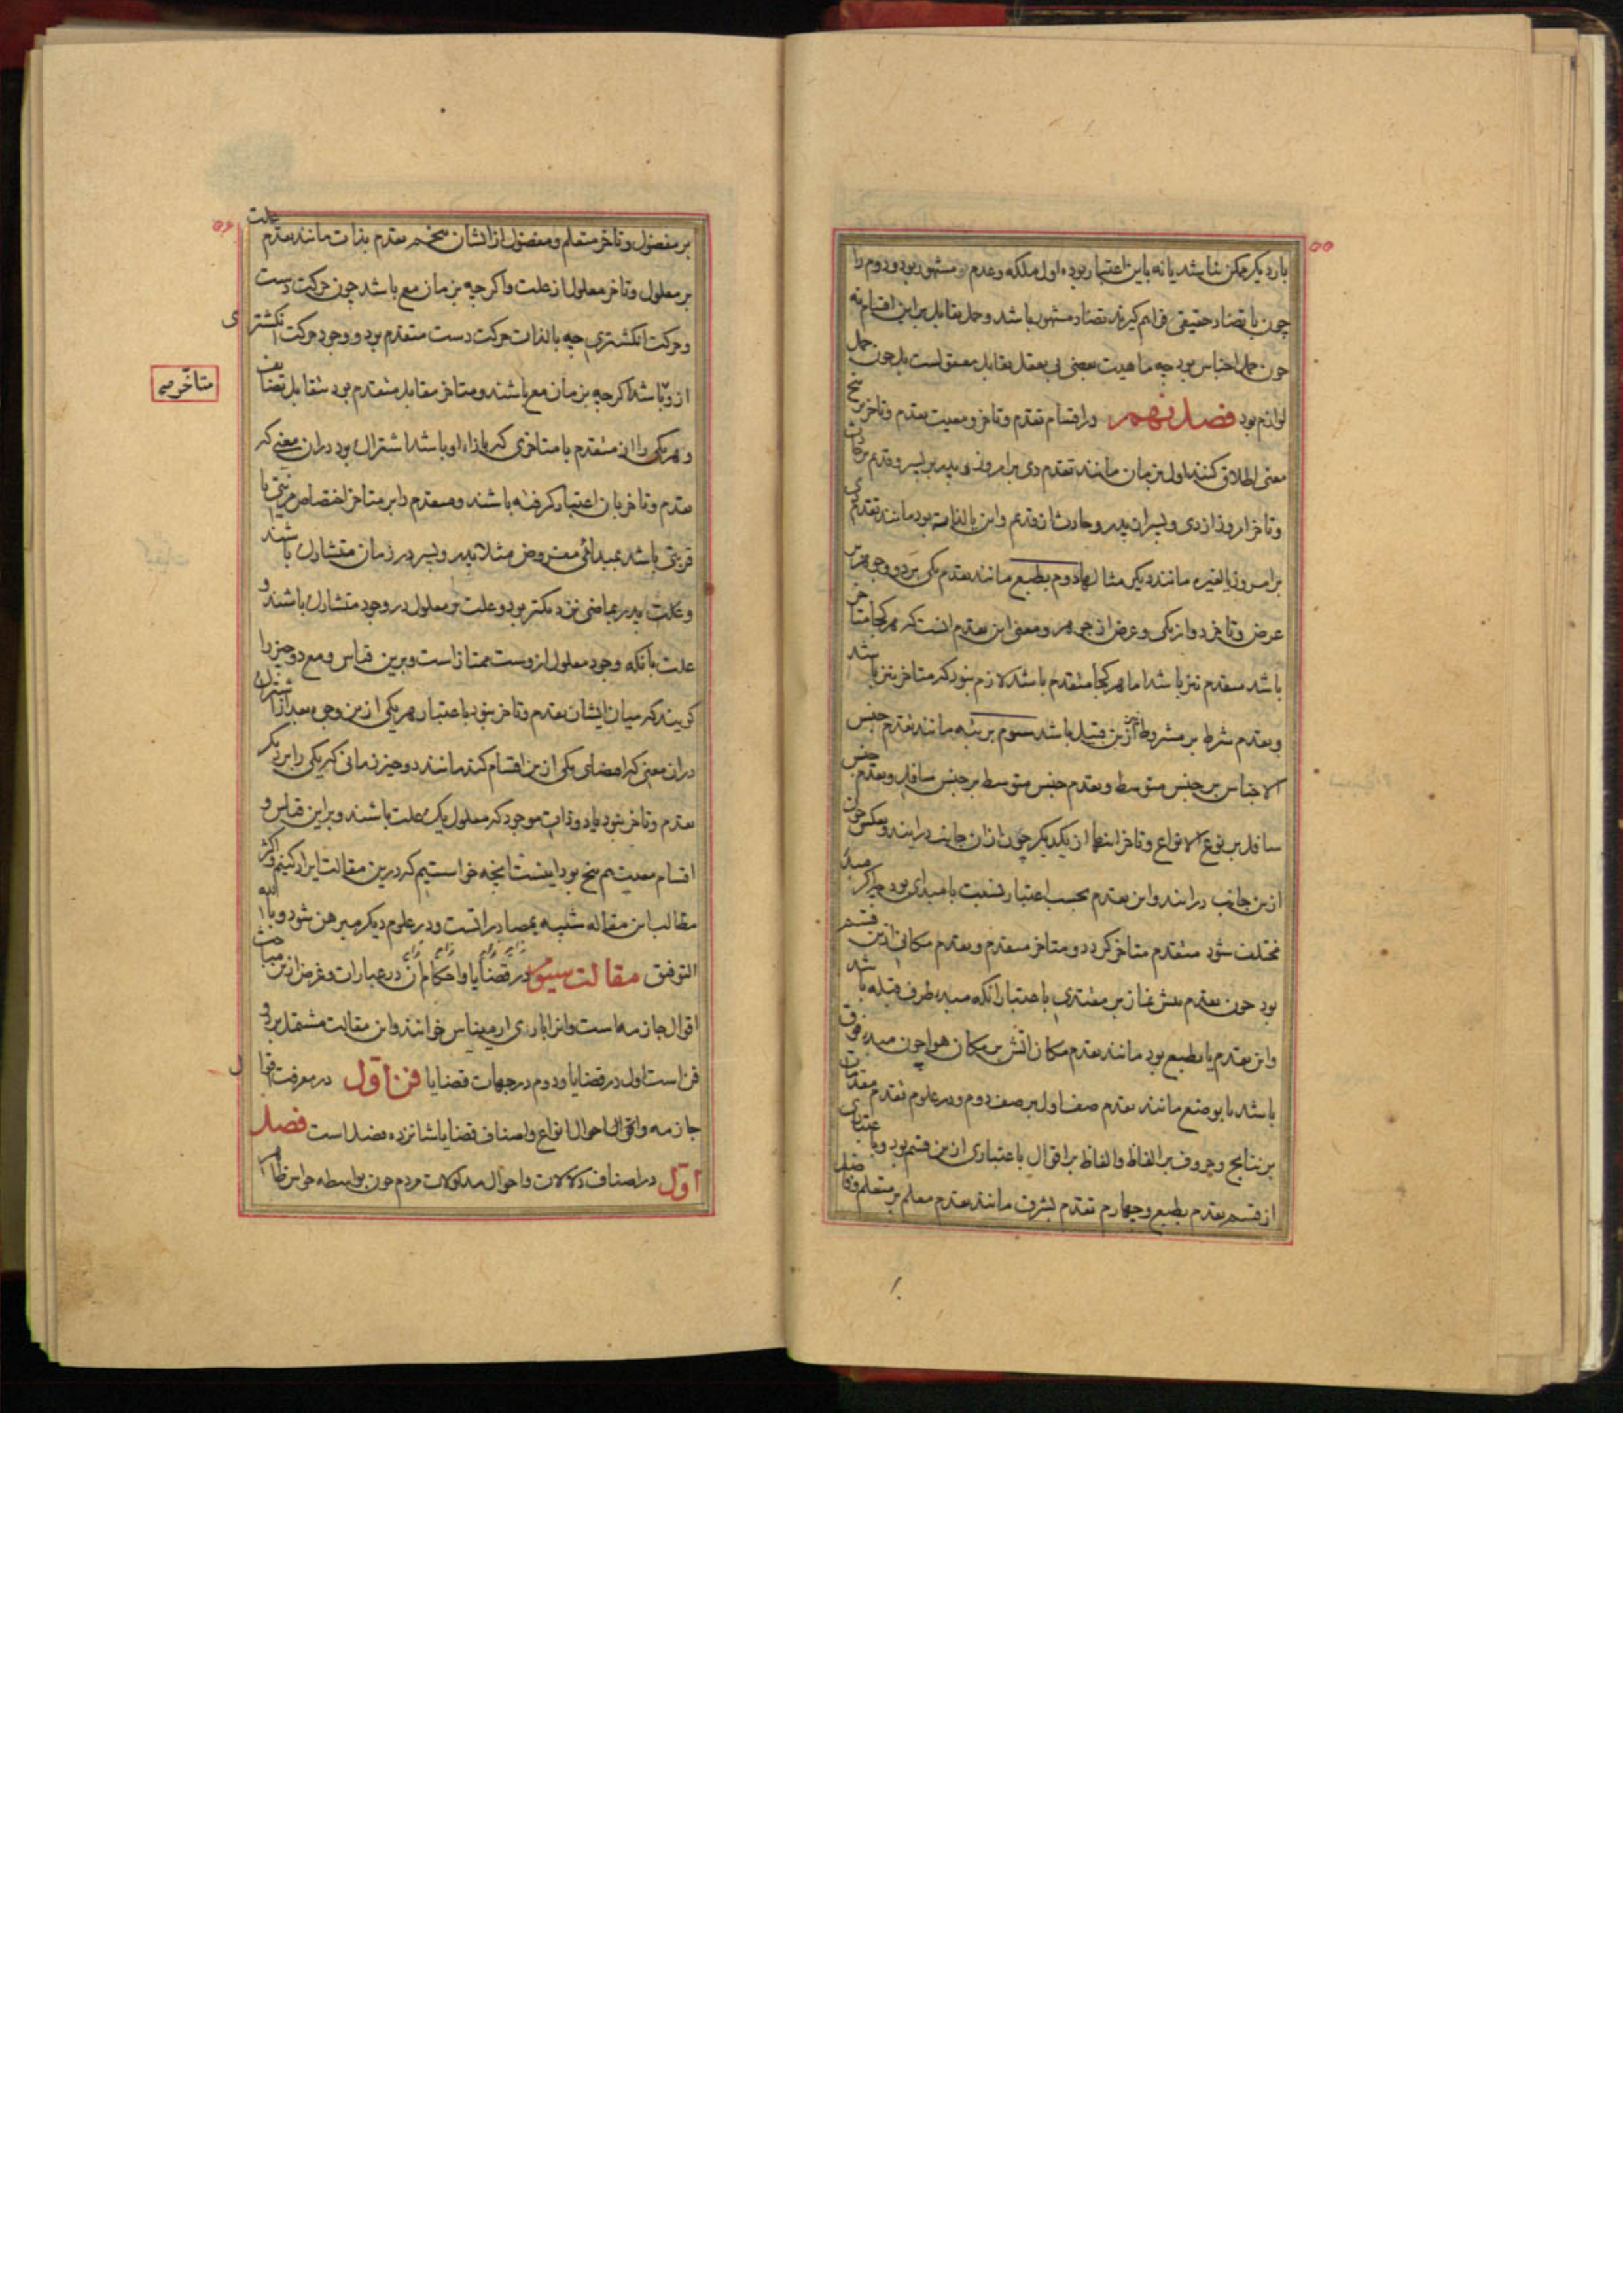 ۵۵
بار دیگر ممکن نباشد یا نه باین اعتبار بود، اول ملکه و عدم مشهور بود و دوم را
چون با تضاد حقیقی فراهم گیرند تضاد مشهور باشد و حمل تقابل بر این اقسام نه
چون حمل اجناس بود چه ماهیت بعضی بی تعقل تقابل معقول است بل چون حمل
لوازم بود فصل نهم در اقسام تقدم و تاخر و معیت تقدم و تاخر بر پنج
معنی اطلاق کنند اول بزمان مانند تقدم دی بر امروز و پدر بر پسر و قدیم بر حادث
و تاخر امروز از دی و پسر از پدر و حادث از قدیم و این بالذات بود مانند تقدم دی
بر امروز یا بغیره مانند دیگر مثالها دوم بطبع مانند تقدم یکی بر دو و جوهر بر
عرض و تاخر دو از یکی و عرض از جوهر و معنی این تقدم آنست که هر کجا متاخر
باشد متقدم نیز باشد اما هر کجا متقدم باشد لازم نبود که متاخر نیز باشد
و تقدم شرط بر مشروط ازین قبیل باشد سوم برتبه مانند تقدم جنس
الاجناس بر جنس متوسط و تقدم جنس متوسط بر جنس سافل و تقدم جنس
سافل بر نوع الانواع و تاخر اینها از یکدیگر چون ازان جانب درآیند و بعکس چون
ازین جانب درآیند و این تقدم بحسب اعتبار نسبت با مبدای بود چه اگر مبدا
مختلف شود متقدم متاخر گردد و متاخر متقدم و تقدم مکانی ازین قسم
بود چون تقدم پیش نماز بر مقتدی باعتبار آنکه مبدء طرف قبله باشد
و این تقدم یا بطبع بود مانند تقدم مکان اتش بر مکان هوا چون مبدء فوق
باشد یا بوضع مانند تقدم صف اول بر صف دوم و در علوم تقدم مقدمات
بر نتایج و حروف بر الفاظ و الفاظ بر اقوال باعتباری ازین قسم بود و باعتباری
از قسم تقدم بطبع و چهارم تقدم بشرف مانند تقدم معلم بر متعلم و فاضل
۵۶
بر مفضول و تاخر متعلم و مفضول از ایشان پنجم تقدم بذات مانند تقدم علت
بر معلول و تاخر معلول از علت و اگرچه بزمان مع باشد چون حرکت دست
و حرکت انگشتری چه بالذات حرکت دست متقدم بود و وجود حرکت انگشتری
ازو باشد اگرچه بزمان مع باشند و متاخر مقابل متقدم بود تقابل تضایف
متاخر سه
و هر یکی را از متقدم با متاخری که بازاء او باشد اشتراک بود دران معنی که
تقدم و تاخر بان اعتبار کرفته باشند و متقدم را بر متاخر اختصاص مزیتی یا
قربتی باشد بمبدائی مفروض مثلا پدر و پسر در زمان متشارک باشند
و لکن پدر بماضی نزدیکتر بود و علت و معلول در وجود متشارک باشند و
علت بآنکه وجود معلول ازوست ممتاز است و برین قیاس و مع دو چیز را
گویند که میان ایشان تقدم و تاخر نبود باعتبار هر یکی ازین وجوه بعد از اشتراک
دران معنی که اقتضای یکی ازین اقسام کند مانند دو چیز زمانی که یکی را بر دیگر
تقدم و تاخر نبود یا دو ذات موجود که معلول یک علت باشند و براین قیاس و
اقسام معیت هم پنج بود اینست انچه خواستیم که درین مقالت ایراد کنیم و اکثر
مطالب این مقاله شبیه بمصادراتست و در علوم دیگر مبرهن شود و بالله
التوفیق مقالت سیوم در قضایا و احکام آن در عبارات و غرض ازین مباحث
اقوال جازمه است و انرا باری ارمیناس خوانند و این مقالت مشتمل بر دو
فن است اول در قضایا و دوم در جهات قضایا فن اول در معرفت اقوال
جازمه و احوال انواع و اصناف قضایا شانزده فصل است فصل
اول در اصناف دلالات و احوال مدلولات مردم چون بواسطه حواس ظاهر